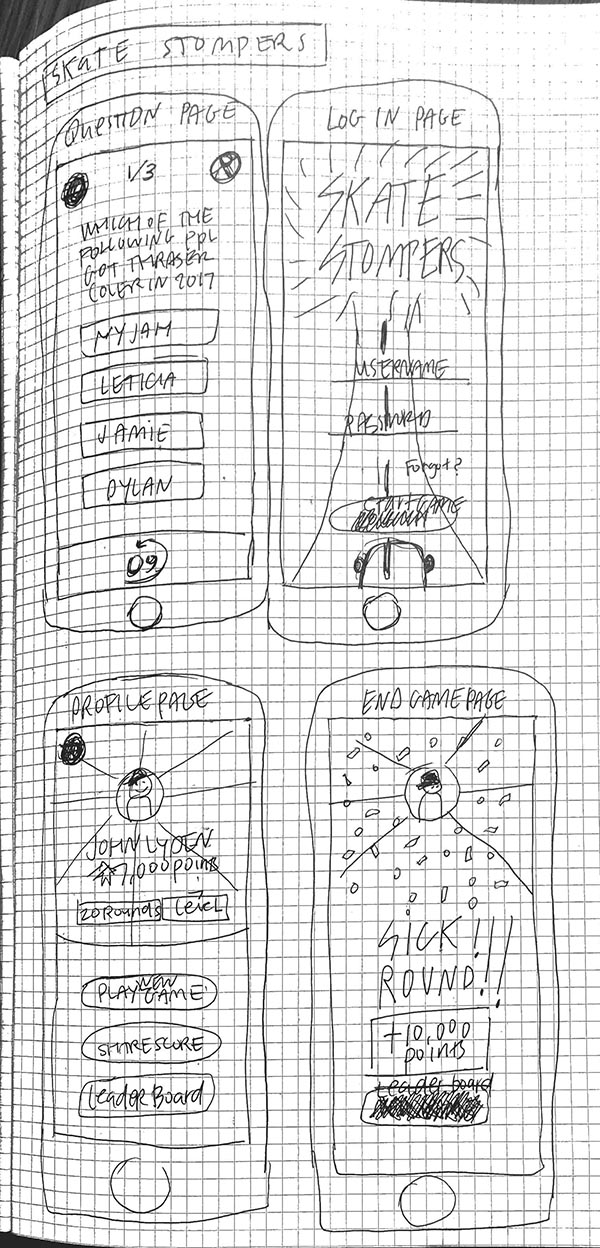 SKATE STOMPERS
QUESTION PAGE
1/3
WHICH OF THE
FOLLOWING PPL
GOT THRASER
COVER IN 2017
NYJAH
LETICIA
JAMIE
DYLAN
09
LOG IN PAGE
SKATE
STOMPERS
USERNAME
PASSWORD
Forgot?
START GAME
PROFILE PAGE
JOHN LYDEN
7,000 points
20 Rounds
7
level
NEW
PLAY GAME
SHARE SCORE
Leader Board
END GAME PAGE
SICK!!!
ROUND!!!
+10,000
points
Leader board